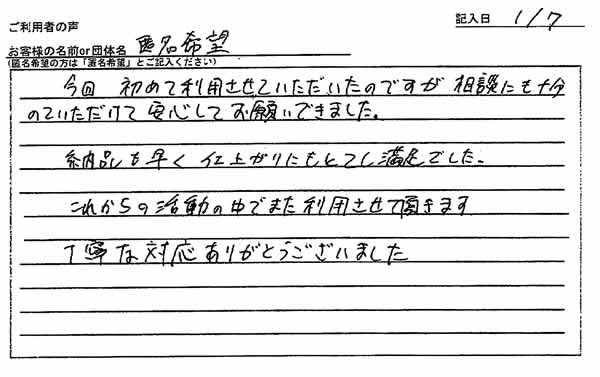 ご利用者の声
記入日 1/7
お客様の名前or団体名 匿名希望
(匿名希望の方は「匿名希望」とご記入ください)
今回 初めて利用させていただいたのですが 相談にも十分
のていただけて 安心して お願いできました。
納品も早く 仕上がりにもとてし満足でした。
これからの活動の中でまた利用させて頂きます
丁寧な対応ありがとうございました